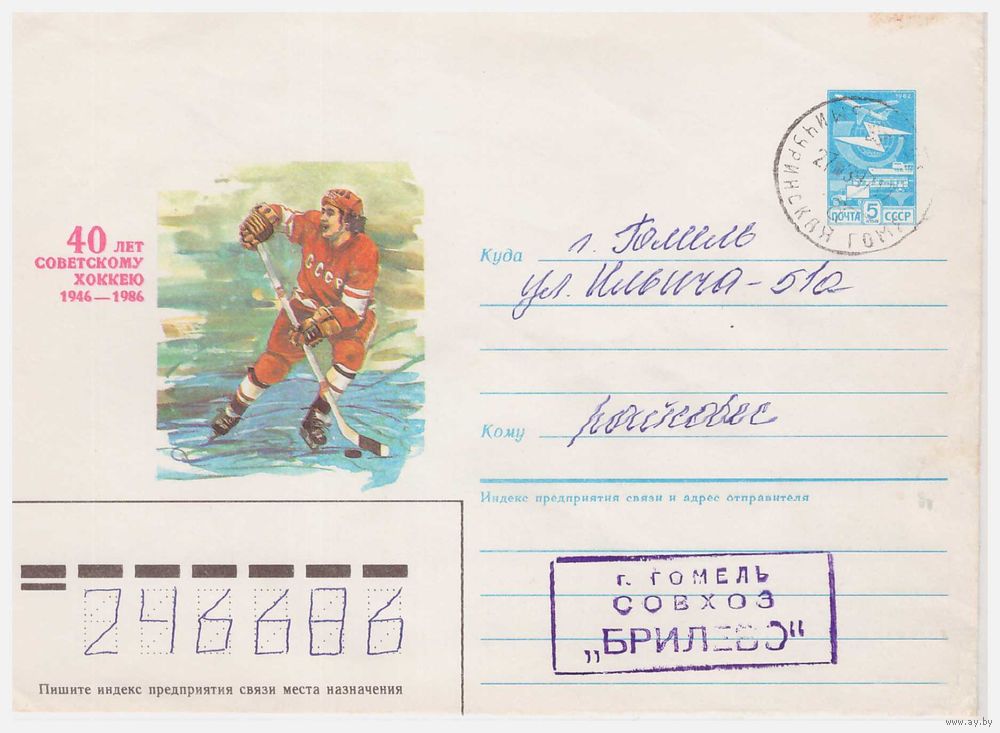 40 ЛЕТ
СОВЕТСКОМУ
ХОККЕЮ
1946—1986
СССР
1982
ПОЧТА 5 СССР
МИЧУРИНСКАЯ ГОМ
Куда г. Гомель
ул. Ильича - 51а
Кому
Индекс предприятия связи и адрес отправителя
г. ГОМЕЛЬ
СОВХОЗ
„БРИЛЕВО“
246686
Пишите индекс предприятия связи места назначения
www.ay.by